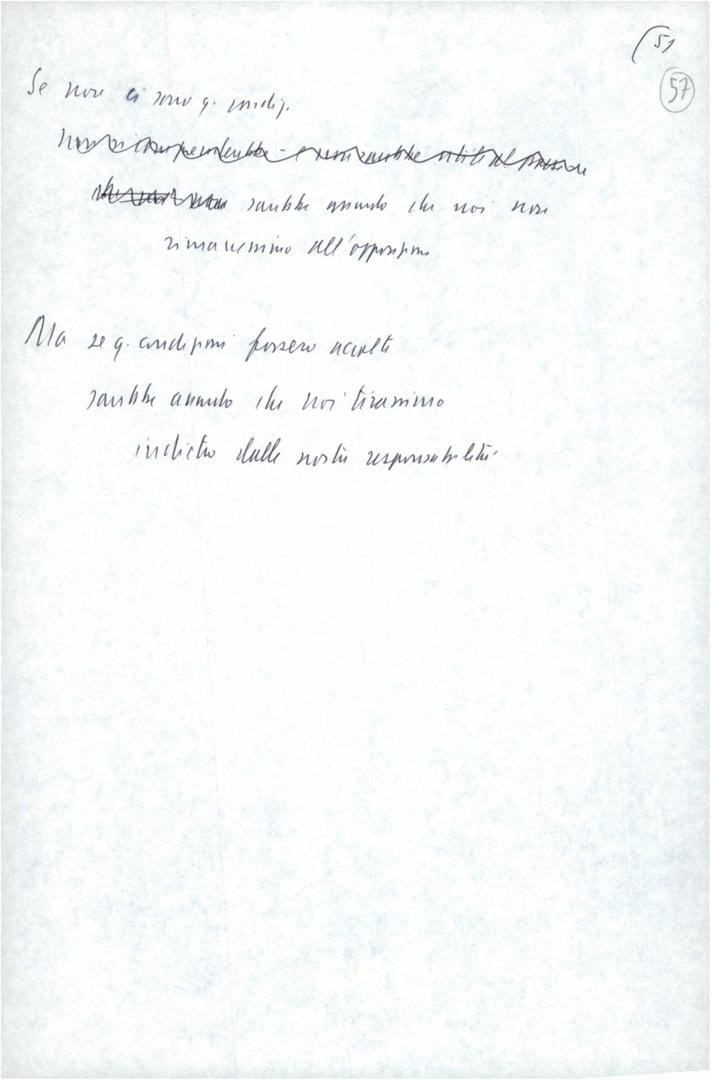 51
57
Se non ci sono q. condiz.
sarebbe assurdo che noi non
rimanessimo all'opposizione
Ma se q. condizioni fossero accolte
sarebbe assurdo che noi tirassimo
indietro dalle nostre responsabilità